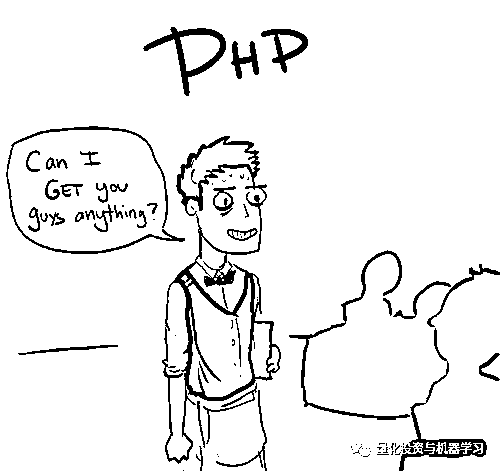 PHP
Can I
GET you
guys anything?
量化投资与机器学习